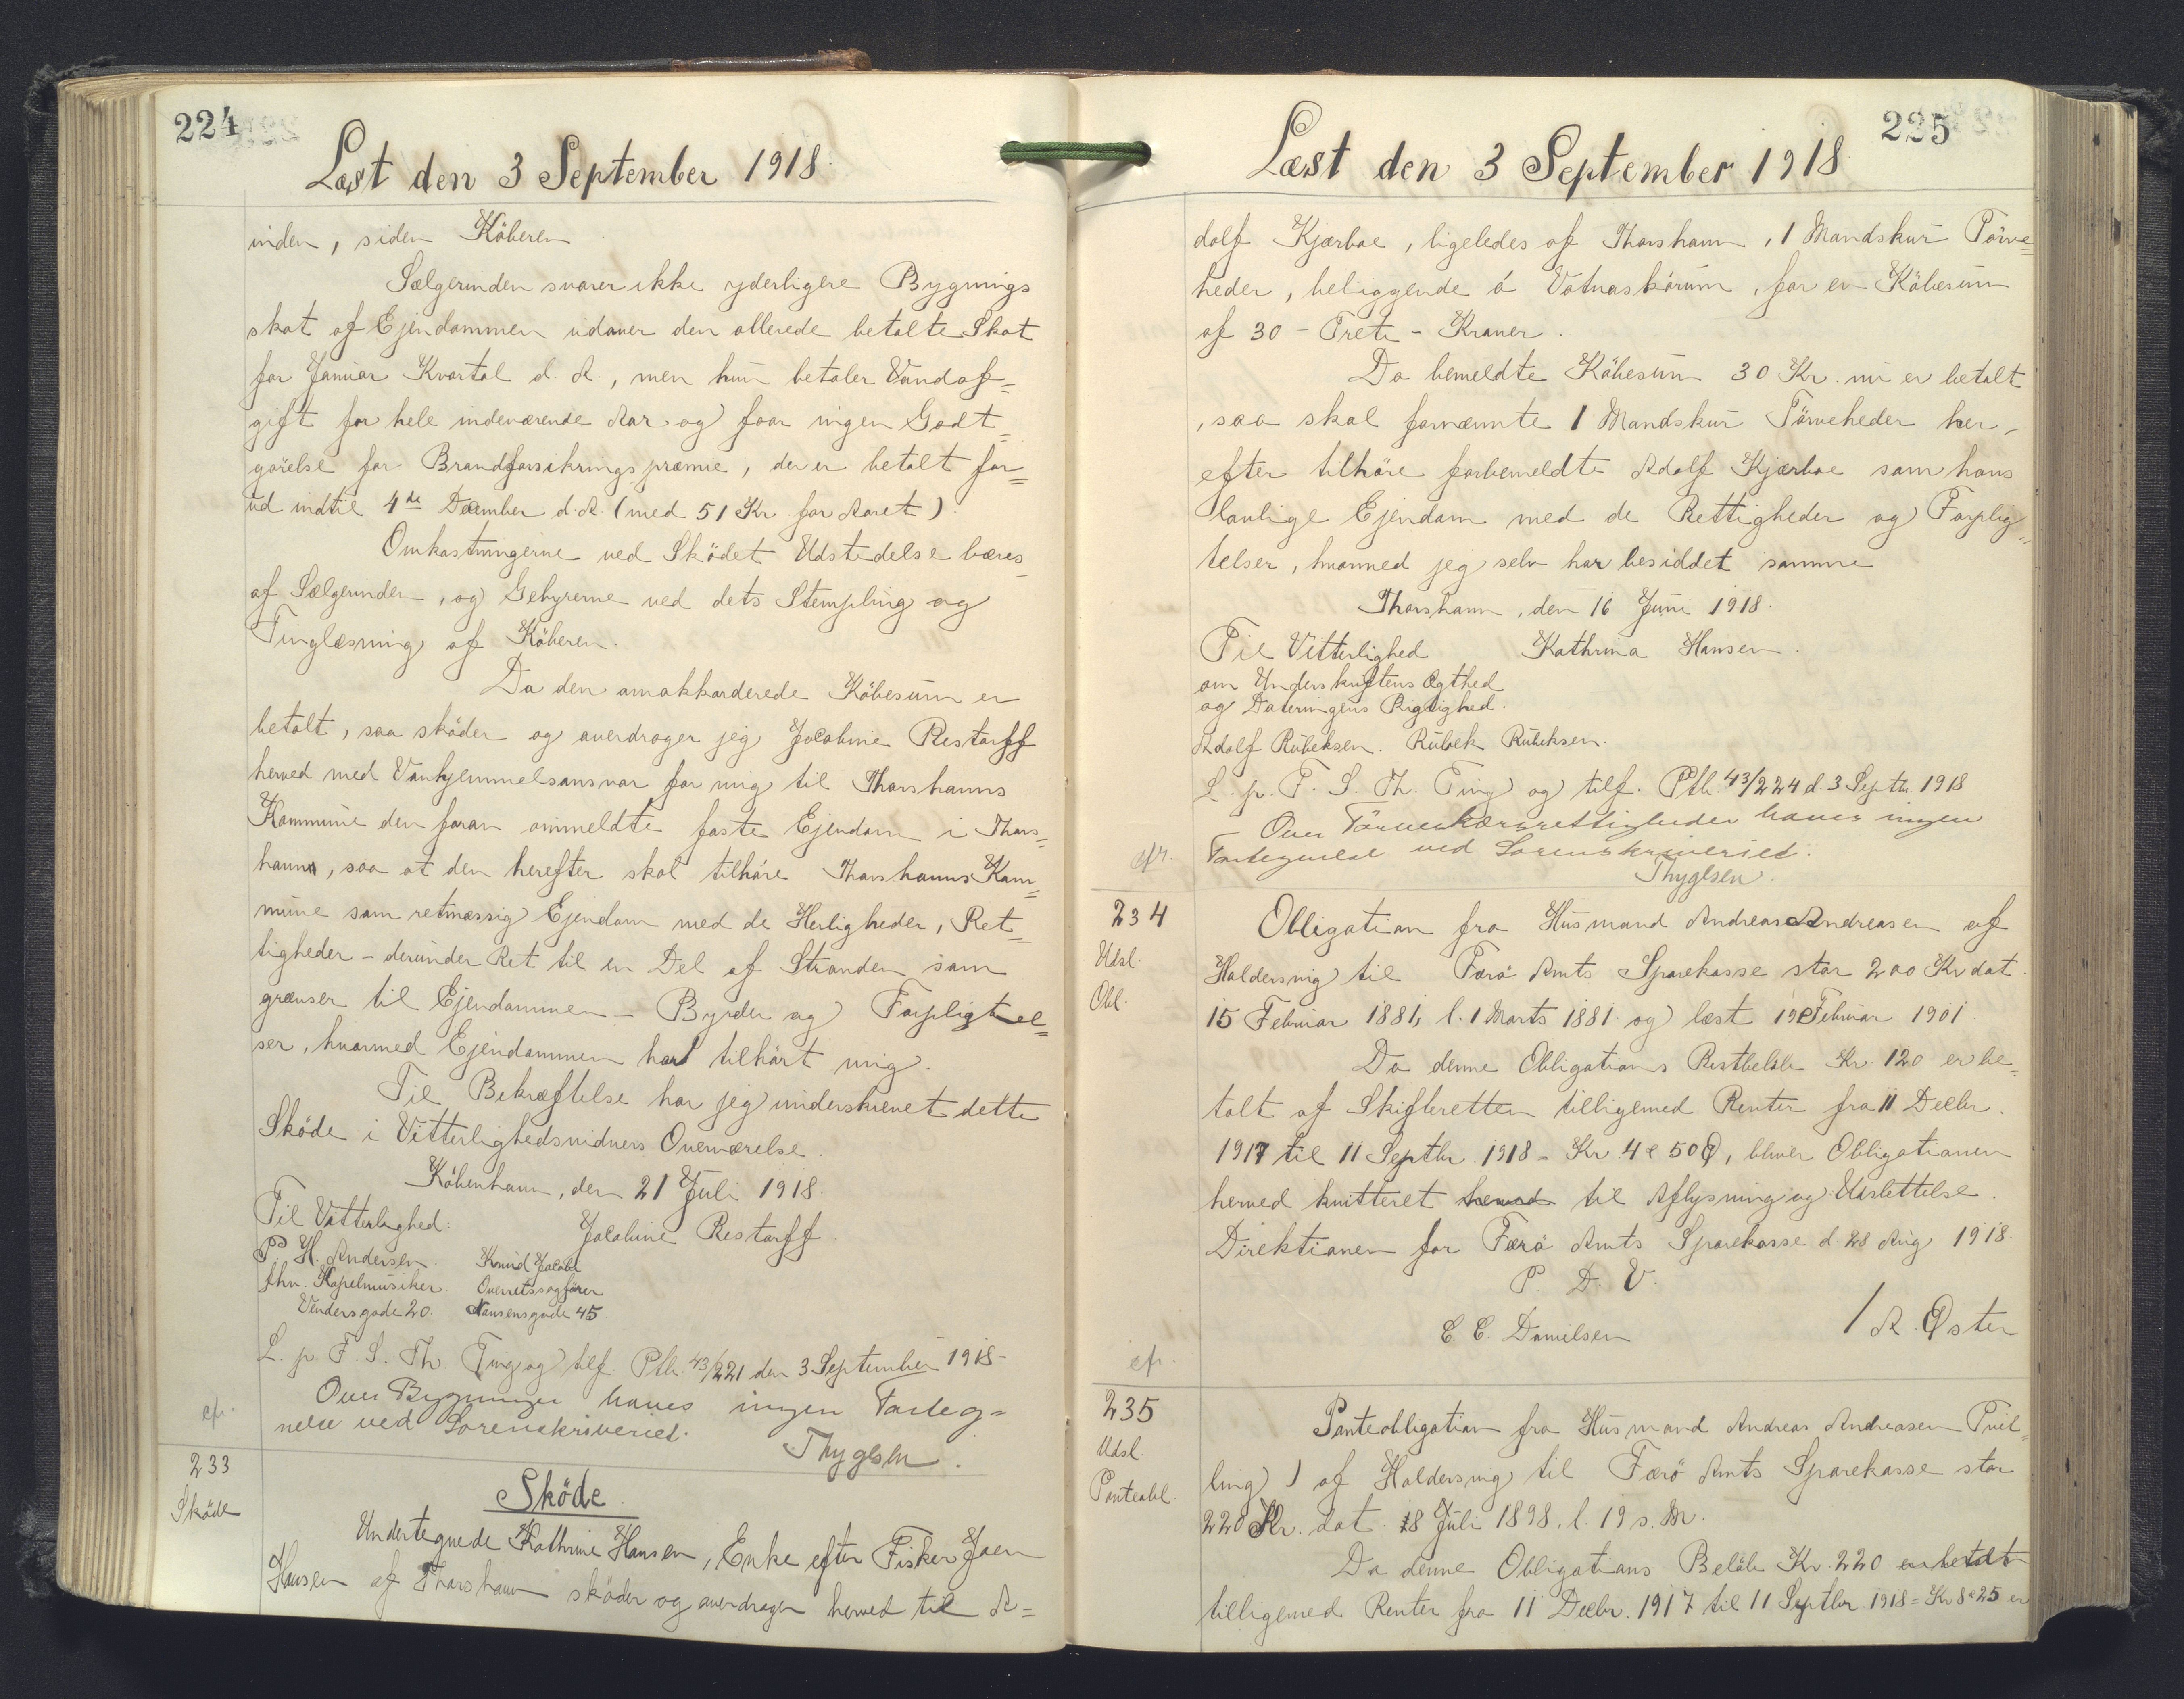 224
Læst den 3 September 1918.
inden, siden Köberen
Sælgerinden svarer ikke yderligere Bygnings
skat af Ejendommen udover den allerede betalte Skat
for Januar Kvartal d. A., men hun betaler Vandaf=
gift for hele indeværende Aar og faar ingen Godt=
görelse for Brandforsikringspræmie, der er betalt for=
ud indtil 4de December d. A. (med 51 Kr for Aaret).
Omkostningerne ved Skødet Udstedelse bæres
af Sælgerinden, og Gebyrerne ved dets Stempling og
Tinglæsning af Köberen.
Da den omakkorderede Köbesum er
betalt, saa sköder og overdrager jeg Jacobine Restorff
herved med Vanhjemmelsansvar for mig til Thorshavns
Kommune den foran ommeldte faste Ejendom i Thors=
havn, saa at den herefter skal tilhöre Thorshavns Kom=
mune som retmæssig Ejendom med de Herligheder, Ret=
tigheder - derunder Ret til en Del af Stranden som
grænser til Ejendommen - Byrder og Forpligtel=
ser, hvormed Ejendommen har tilhört mig.
Til Bekræftelse har jeg underskrevet dette
Sköde i Vitterlighedsvidners Overværelse.
Köbenhavn, den 21 Juli 1918.
Til Vitterlighed: Jacobine Restorff.
P. H. Andersen. Knud Jacobi
fhv. Kapelmusiker Overretssagförer
Vendersgade 20. Nansensgade 45
L. p. F. S. Th. Ting og tilf. Ptb. 43/221 den 3 September 1918-
Over Bygninger haves ingen Forteg=
cfr. nelse ved Sorenskriveriet.
Thygesen.
233
Sköde
Sköde.
Undertegnede Kathrine Hansen, Enke efter Fisker Joen
Hansen af Thorshavn sköder og overdrager herved til A=
225
Læst den 3 September 1918
dolf Kjærbo, ligeledes af Thorshavn, 1 Mandskur Törve=
heder, beliggende á Votnaskörum, for en Köbesum
af 30 - Treti - Kroner.
Da bemeldte Köbesum 30 Kr. nu er betalt
, saa skal fornævnte 1 Mandskur Törveheder her,
efter tilhöre forbemeldte Adolf Kjærbo som hans
lovlige Ejendom med de Rettigheder og Forplig=
telser, hvormed jeg selv har besiddet samme
Thorshavn, den 16 Juni 1918.
Til Vitterlighed Kathrina Hansen.
om Underskriftens Ægthed
og Dateringens Rigtighed.
Adolf Rubeksen. Rubek Rubeksen.
L. p. F. S. Th. Ting og tilf. Ptb. 43/224 d. 3 Septb. 1918
Over Törveskærsrettigheder haves ingen
cfr. Fortegnelse ved Sorenskriveriet.
Thygesen.
234
Udsl.
Obl.
Obligation fra Husmand Andreas Andreasen af
Haldersvig til Færö Amts Sparekasse stor 200 Kr dat.
15 Februar 1881, l. 1 Marts 1881 og læst 19 Februar 1901.
Da denne Obligations Restbelöb Kr. 120 er be=
talt af Skifteretten tilligemed Renter fra 11 Decbr.
1917 til 11 Septbr. 1918 = Kr. 4 e 50 Ø, bliver Obligationen
herved kvitteret herved til Aflysning og Udslettelse.
Direktionen for Færö Amts Sparekasse d. 28 Aug 1918.
P. D. V.
E. E. Danielsen / A. Øster
cfr.
235
Udsl.
Panteobl.
Panteobligation fra Husmand Andreas Andreasen
ling) af Haldersvig til Færö Amts Sparekasse stor
220 Kr. dat. 18 Juli 1898, l. 19 s. M.
Da denne Obligations Belöb Kr. 220 er betalt
tilligemed Renter fra 11 Decbr. 1917 til 11 Septbr. 1918 = Kr 8 e 25 er